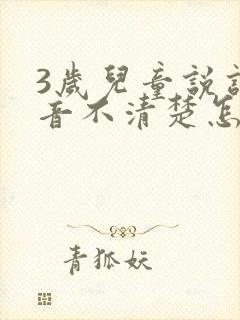 3歲兒童說
音不清楚怎
青狐妖